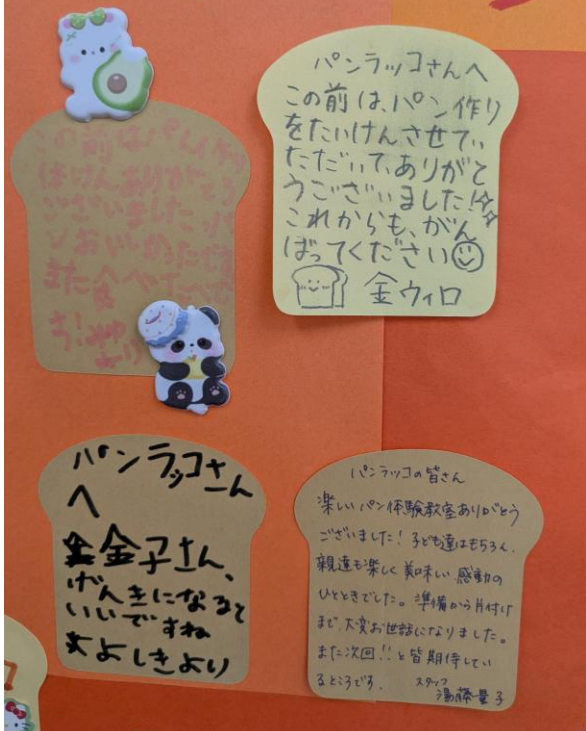 この前はパン作り
たいけんありがとう
ございました。パ
ンおいしかったです
また食べたいで
す!
より
パンラッコさんへ
この前は、パン作り
をたいけんさせてい
ただいて、ありがと
うございました!
これからも、がん
ばってください
金ウィロ
パンラッコさん
へ
金子さん、
げんきになると
いいですね
よしきより
パンラッコの皆さん
楽しいパン体験教室ありがとう
ございました!子ども達はもちろん、
親達も楽しく美味しい感動の
ひとときでした。準備から片付け
まで、大変お世話になりました。
また次回!!と皆期待してい
るところです。
スタッフ
湯藤量子